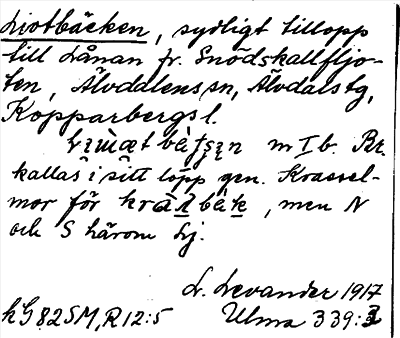 Ljotbäcken, sydligt tillopp
till Lånan fr. Snödskallfljo-
ten, Älvdalens sn, Älvdals tg,
Kopparbergs l.
m I b. Br.
kallas i sitt lopp gen. Krassel-
mor för kraʌbek, men N
och S härom Lj.
L. Levander 1917
kG 82 SM, R 12:5 Ulma 339:3